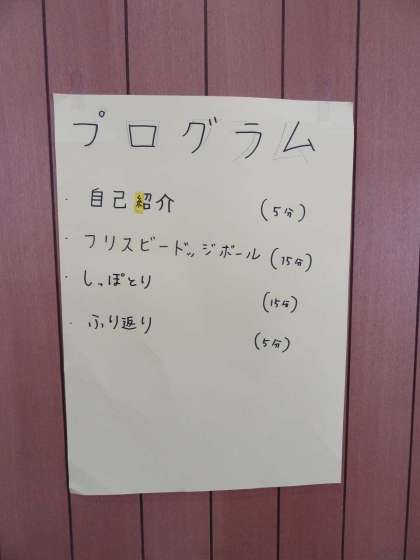 プログラム
・自己紹介 (5分)
・フリスビードッジボール (15分)
・しっぽとり (15分)
・ふり返り (5分)